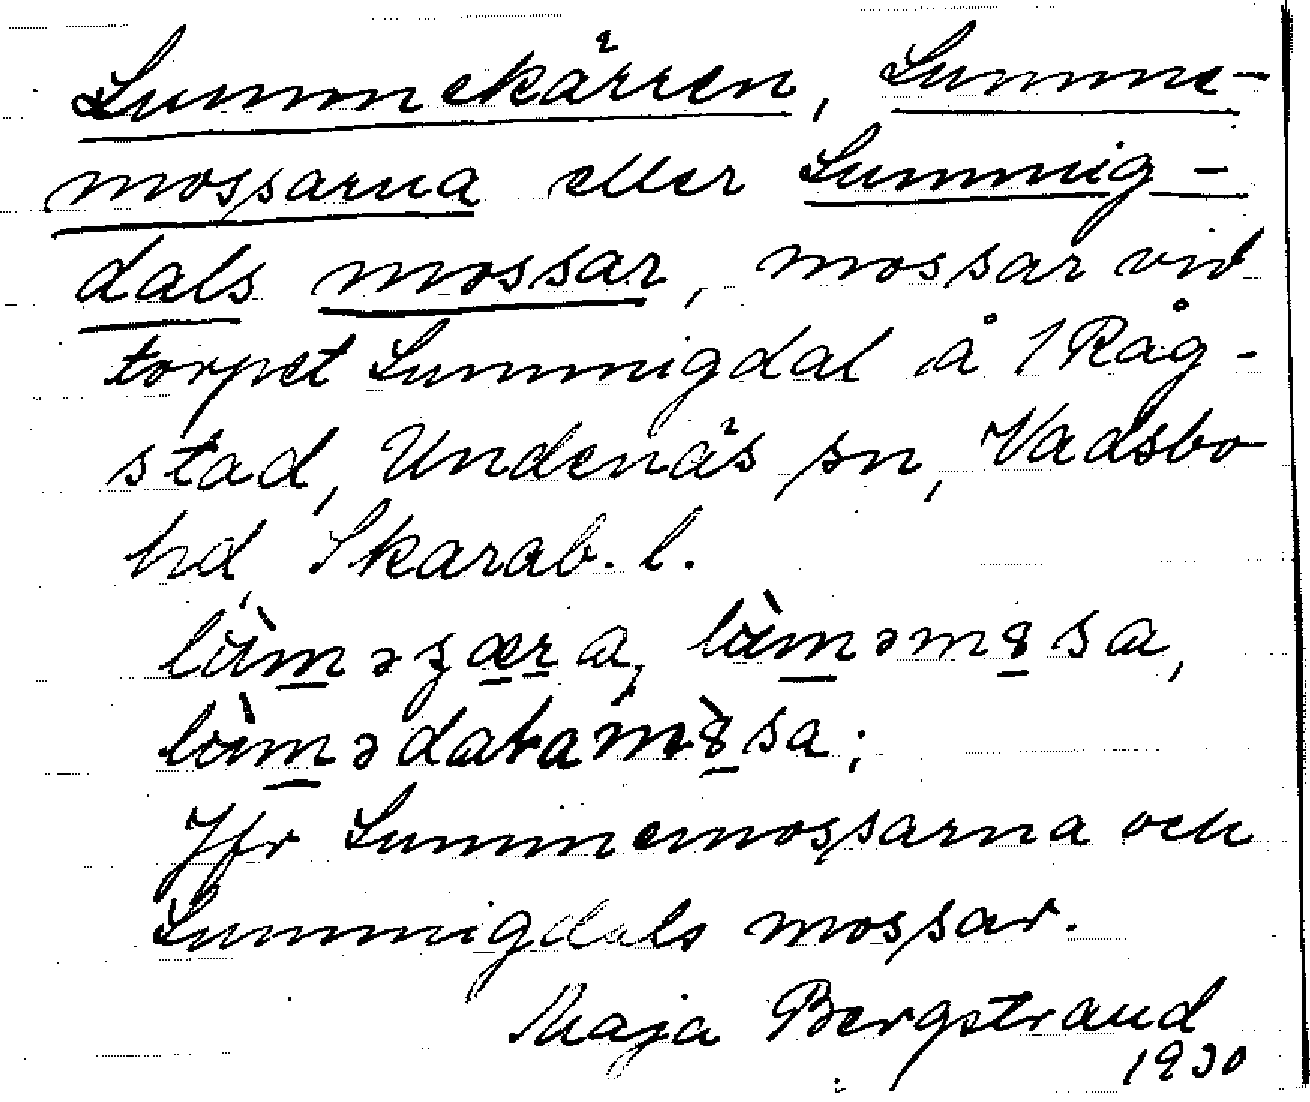 Lummekärren, Lumme-
mossarna eller Lummig-
dals mossar, mossar vid
torpet Lummigdal å 1 Råg-
stad, Undenäs sn, Vadsbo
hd, Skarab. l.
Jfr Lummemossarna och
Lummigdals mossar.
Maja Bergstrand
1930